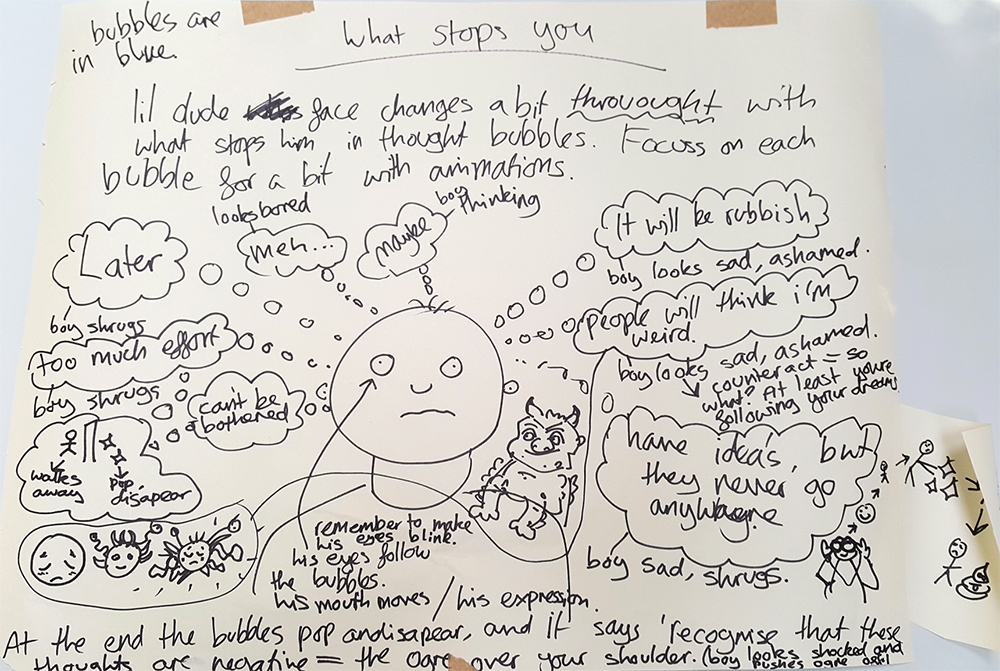 bubbles are
in blue.
What stops you
lil dude face changes a bit throuought with
what stops him in thought bubbles. Focuss on each
bubble for a bit with animations.
looks bored
meh...
boy thinking
maybe
Later
boy shrugs
too much effort
boy shrugs
can't be
bothered
walks
away
pop,
disapear
It will be rubbish
boy looks sad, ashamed.
people will think i'm
weird.
boy looks sad, ashamed.
counteract = so
what? At least you're
following your dreams
have idea's, but
they never go
anywhere
boy sad, shrugs.
remember to make
his eyes blink.
his eyes follow
the bubbles.
his mouth moves / his expression.
At the end the bubbles pop and isapear, and it says 'recognise that these
thoughts are negative = the ogre over your shoulder. (boy looks shocked and
pushes ogre off